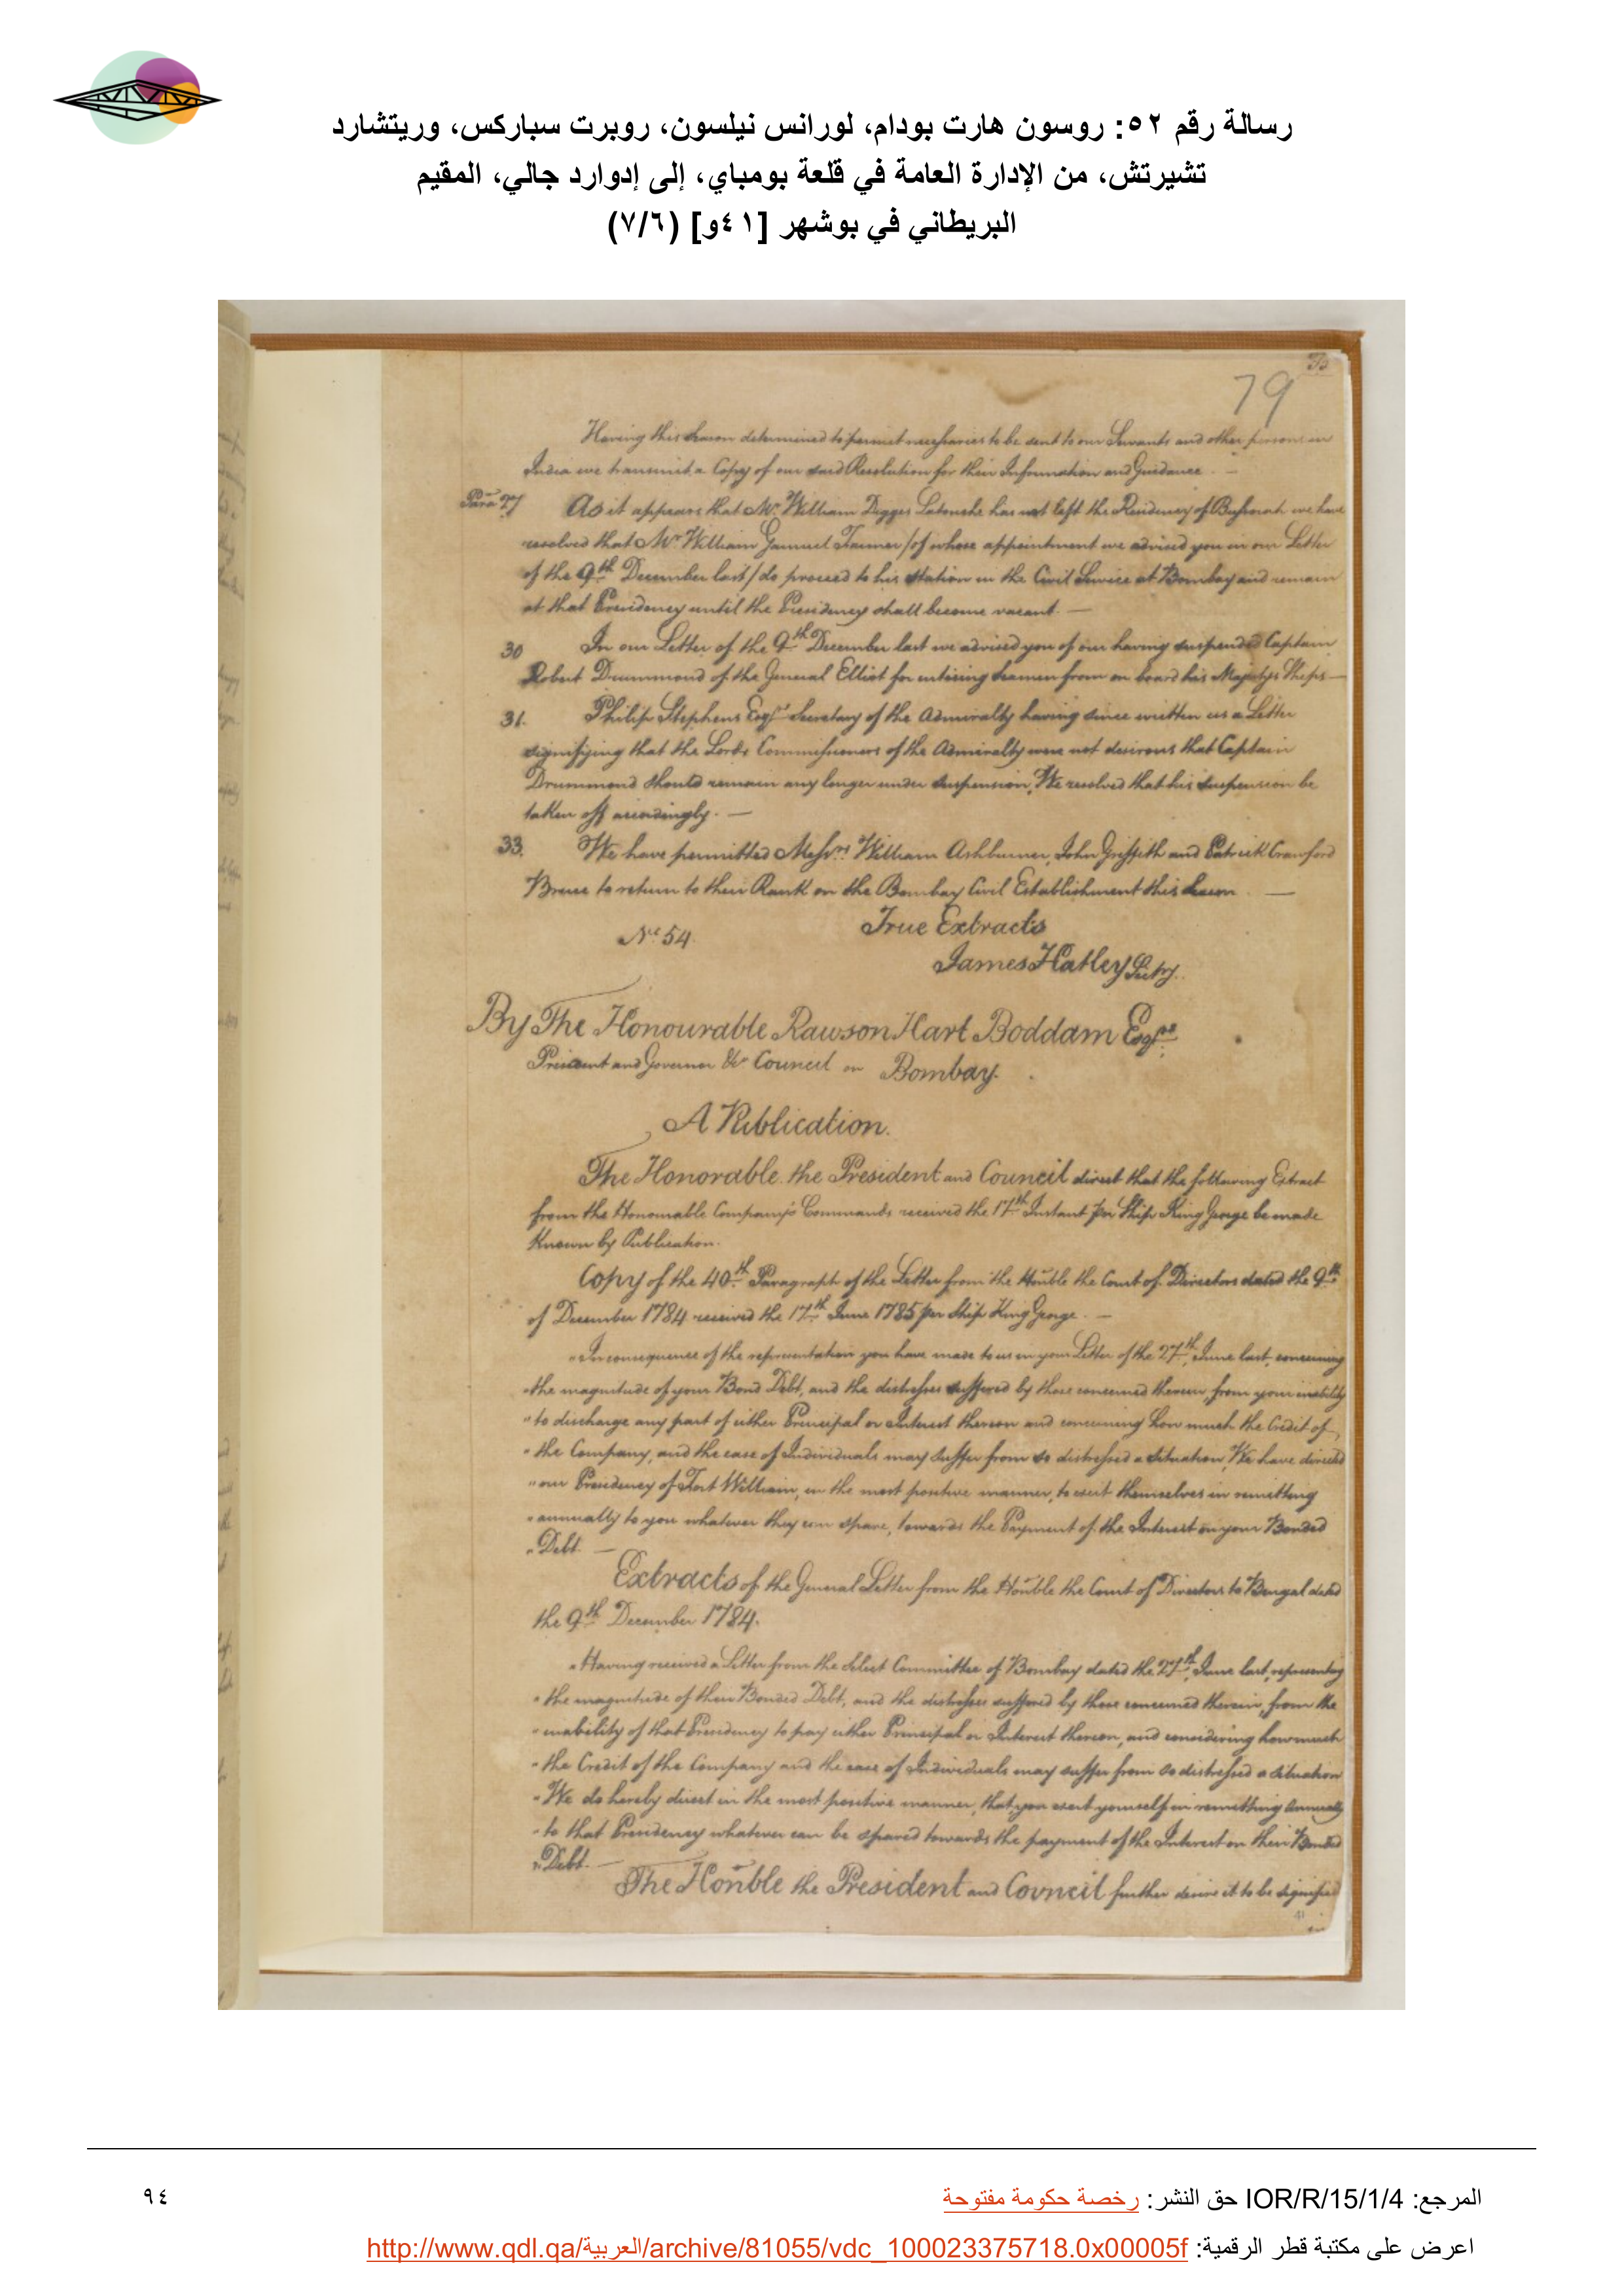 رسالة رقم ٥٢: روسون هارت بودام، لورانس نيلسون، روبرت سباركس، وريتشارد
تشيرتش، من الإدارة العامة في قلعة بومباي، إلى إدوارد جالي، المقيم
البريطاني في بوشهر [٤١و] (٧/٦)
79
Having this Season determined to permit necessaries to be sent to our Servants and other persons in
India we transmit a Copy of our said Resolution for their Information and Guidance. —
Para 27 As it appears that Mr. William Digges Latouche has not left the Residency of Bussorah we have
resolved that Mr. William Samuel /of whose appointment we advised you in our Letter
of the 9th December last/ do proceed to his Station in the Civil Service at Bombay and remain
at that Presidency until the Residency shall become vacant. —
30 In our Letter of the 9th December last we advised you of our having suspended Captain
Robert Drummond of the General Elliot for enticing Seamen from on board his Majestys Ships —
31. Philip Stephens Esqr. Secretary of the Admiralty having since written us a Letter
signifying that the Lords Commissioners of the Admiralty were not desirous that Captain
Drummond should remain any longer under suspension, We resolved that his suspension be
taken off accordingly. —
33. We have permitted Messrs. William Ashburner, John Griffith and Patrick Crawford
Bruce to return to their Rank on the Bombay Civil Establishment this Season. —
No. 54 True Extracts
James Hatley Secty.
By The Honourable Rawson Hart Boddam Esqre.
President and Governor &ca Council on Bombay.
A Publication.
The Honorable the President and Council direct that the following Extract
from the Honourable Company's Commands received the 17th Instant per Ship King George be made
Known by Publication.
Copy of the 40th Paragraph of the Letter from the Honble the Court of Directors dated the 9th
of December 1784 received the 17th June 1785 per Ship King George. —
"In consequence of the representation you have made to us in your Letter of the 27th June last, concerning
"the magnitude of your Bond Debt, and the distresses suffered by those concerned therein, from your inability
"to discharge any part of either Principal or Interest thereon and concerning how much the Credit of
"the Company, and the ease of Individuals may suffer from so distressed a situation, We have directed
"our Presidency of Fort William, in the most positive manner, to exert themselves in remitting
"annually to you whatever they can spare, towards the Payment of the Interest on your Bonded
"Debt. —
Extracts of the General Letter from the Honble the Court of Directors to Bengal dated
the 9th December 1784.
"Having received a Letter from the Select Committee of Bombay dated the 27th June last, representing
"the magnitude of their Bonded Debt, and the distresses suffered by those concerned therein, from the
"inability of that Presidency to pay either Principal or Interest thereon, and considering how much
"the Credit of the Company and the ease of Individuals may suffer from so distressed a situation
"We do hereby direct in the most positive manner, that you exert yourself in remitting Annually
"to that Presidency whatever can be spared towards the payment of the Interest on their Bonded
"Debt. —
The Honble the President and Council further desire it to be signified
41
in
المرجع: IOR/R/15/1/4 حق النشر: رخصة حكومة مفتوحة
٩٤
اعرض على مكتبة قطر الرقمية: http://www.qdl.qa/العربية/archive/81055/vdc_100023375718.0x00005f